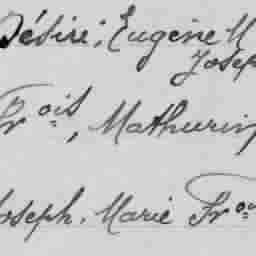 Désiré, Eugène M
Joseph
Frois, Mathurin
Joseph. Marie Fro